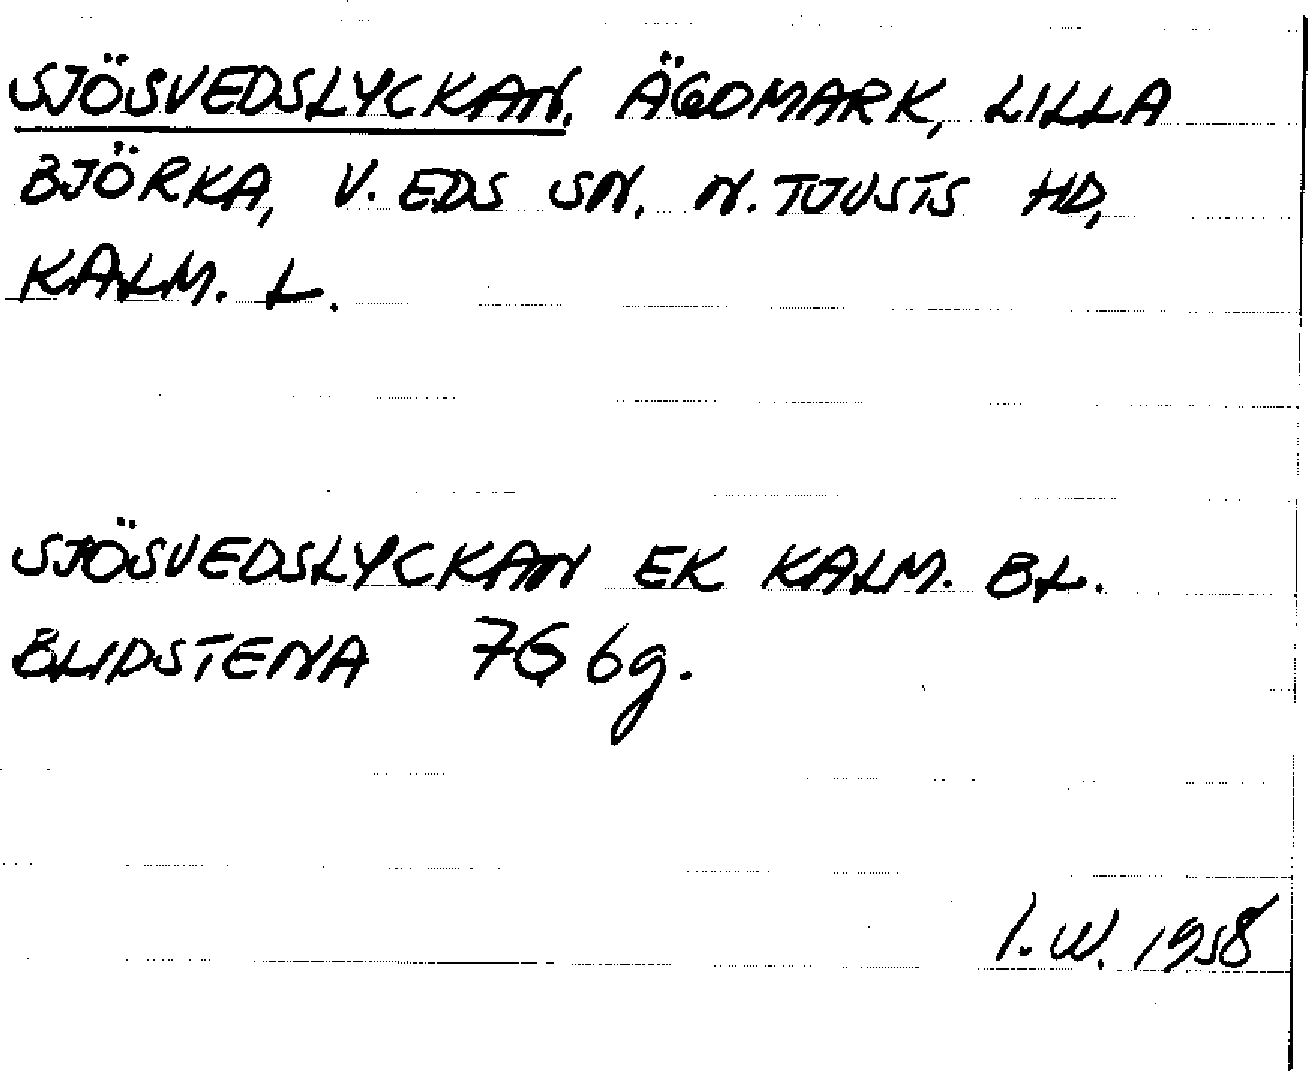 SJÖSVEDSLYCKAN, ÄGOMARK, LILLA
BJÖRKA, V. EDS SN. N. TJUSTS HD,
KALM. L.
SJÖSVEDSLYCKAN EK KALM. BL.
BLIDSTENA 7G 6g.
I. W. 1958